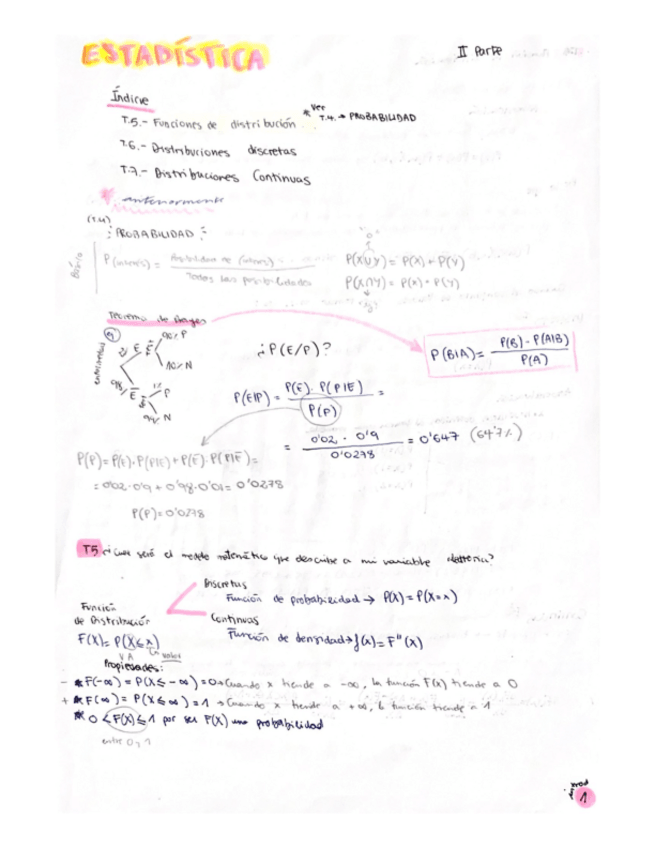 ESTADÍSTICA
II Parte
Índice
T.5.- Funciones de distribución
* Ver T.4. → PROBABILIDAD
T.6.- Distribuciones discretas
T.7.- Distribuciones Continuas
* anteriormente
(T.4)
PROBABILIDAD
Básico
P(interés) =
Todas las posibilidades
"o"
P(X∪Y) = P(X) + P(Y)
P(X∩Y) = P(X) · P(Y)
"y"
Teorema de Bayes
enfermedad
2% E
90% P
10% N
98% E̅
1% P
99% N
¿P(E/P)?
P(B|A) = P(B) · P(A|B) / P(A)
P(E|P) = P(E) · P(P|E) / P(P) =
= 0'02 · 0'9 / 0'0278 = 0'647 (64'7%)
P(P) = P(E) · P(P|E) + P(E̅) · P(P|E̅) =
= 0'02 · 0'9 + 0'98 · 0'01 = 0'0278
P(P) = 0'0278
T5 ¿Cual será el modelo matemático que describe a mi variable aleatoria?
Discretas
Función de probabilidad → P(X) = P(X=x)
Función de Distribución
F(X) = P(X ≤ x)
VA
valor
Continuas
Función de densidad → f(x) = F"(X)
Propiedades:
- * F(-∞) = P(X ≤ -∞) = 0 → Cuando x tiende a -∞, la función F(x) tiende a 0
+ * F(∞) = P(X ≤ ∞) = 1 → Cuando x tiende a +∞, la función tiende a 1
* 0 ≤ F(X) ≤ 1 por ser P(X) una probabilidad
entre 0 y 1
1